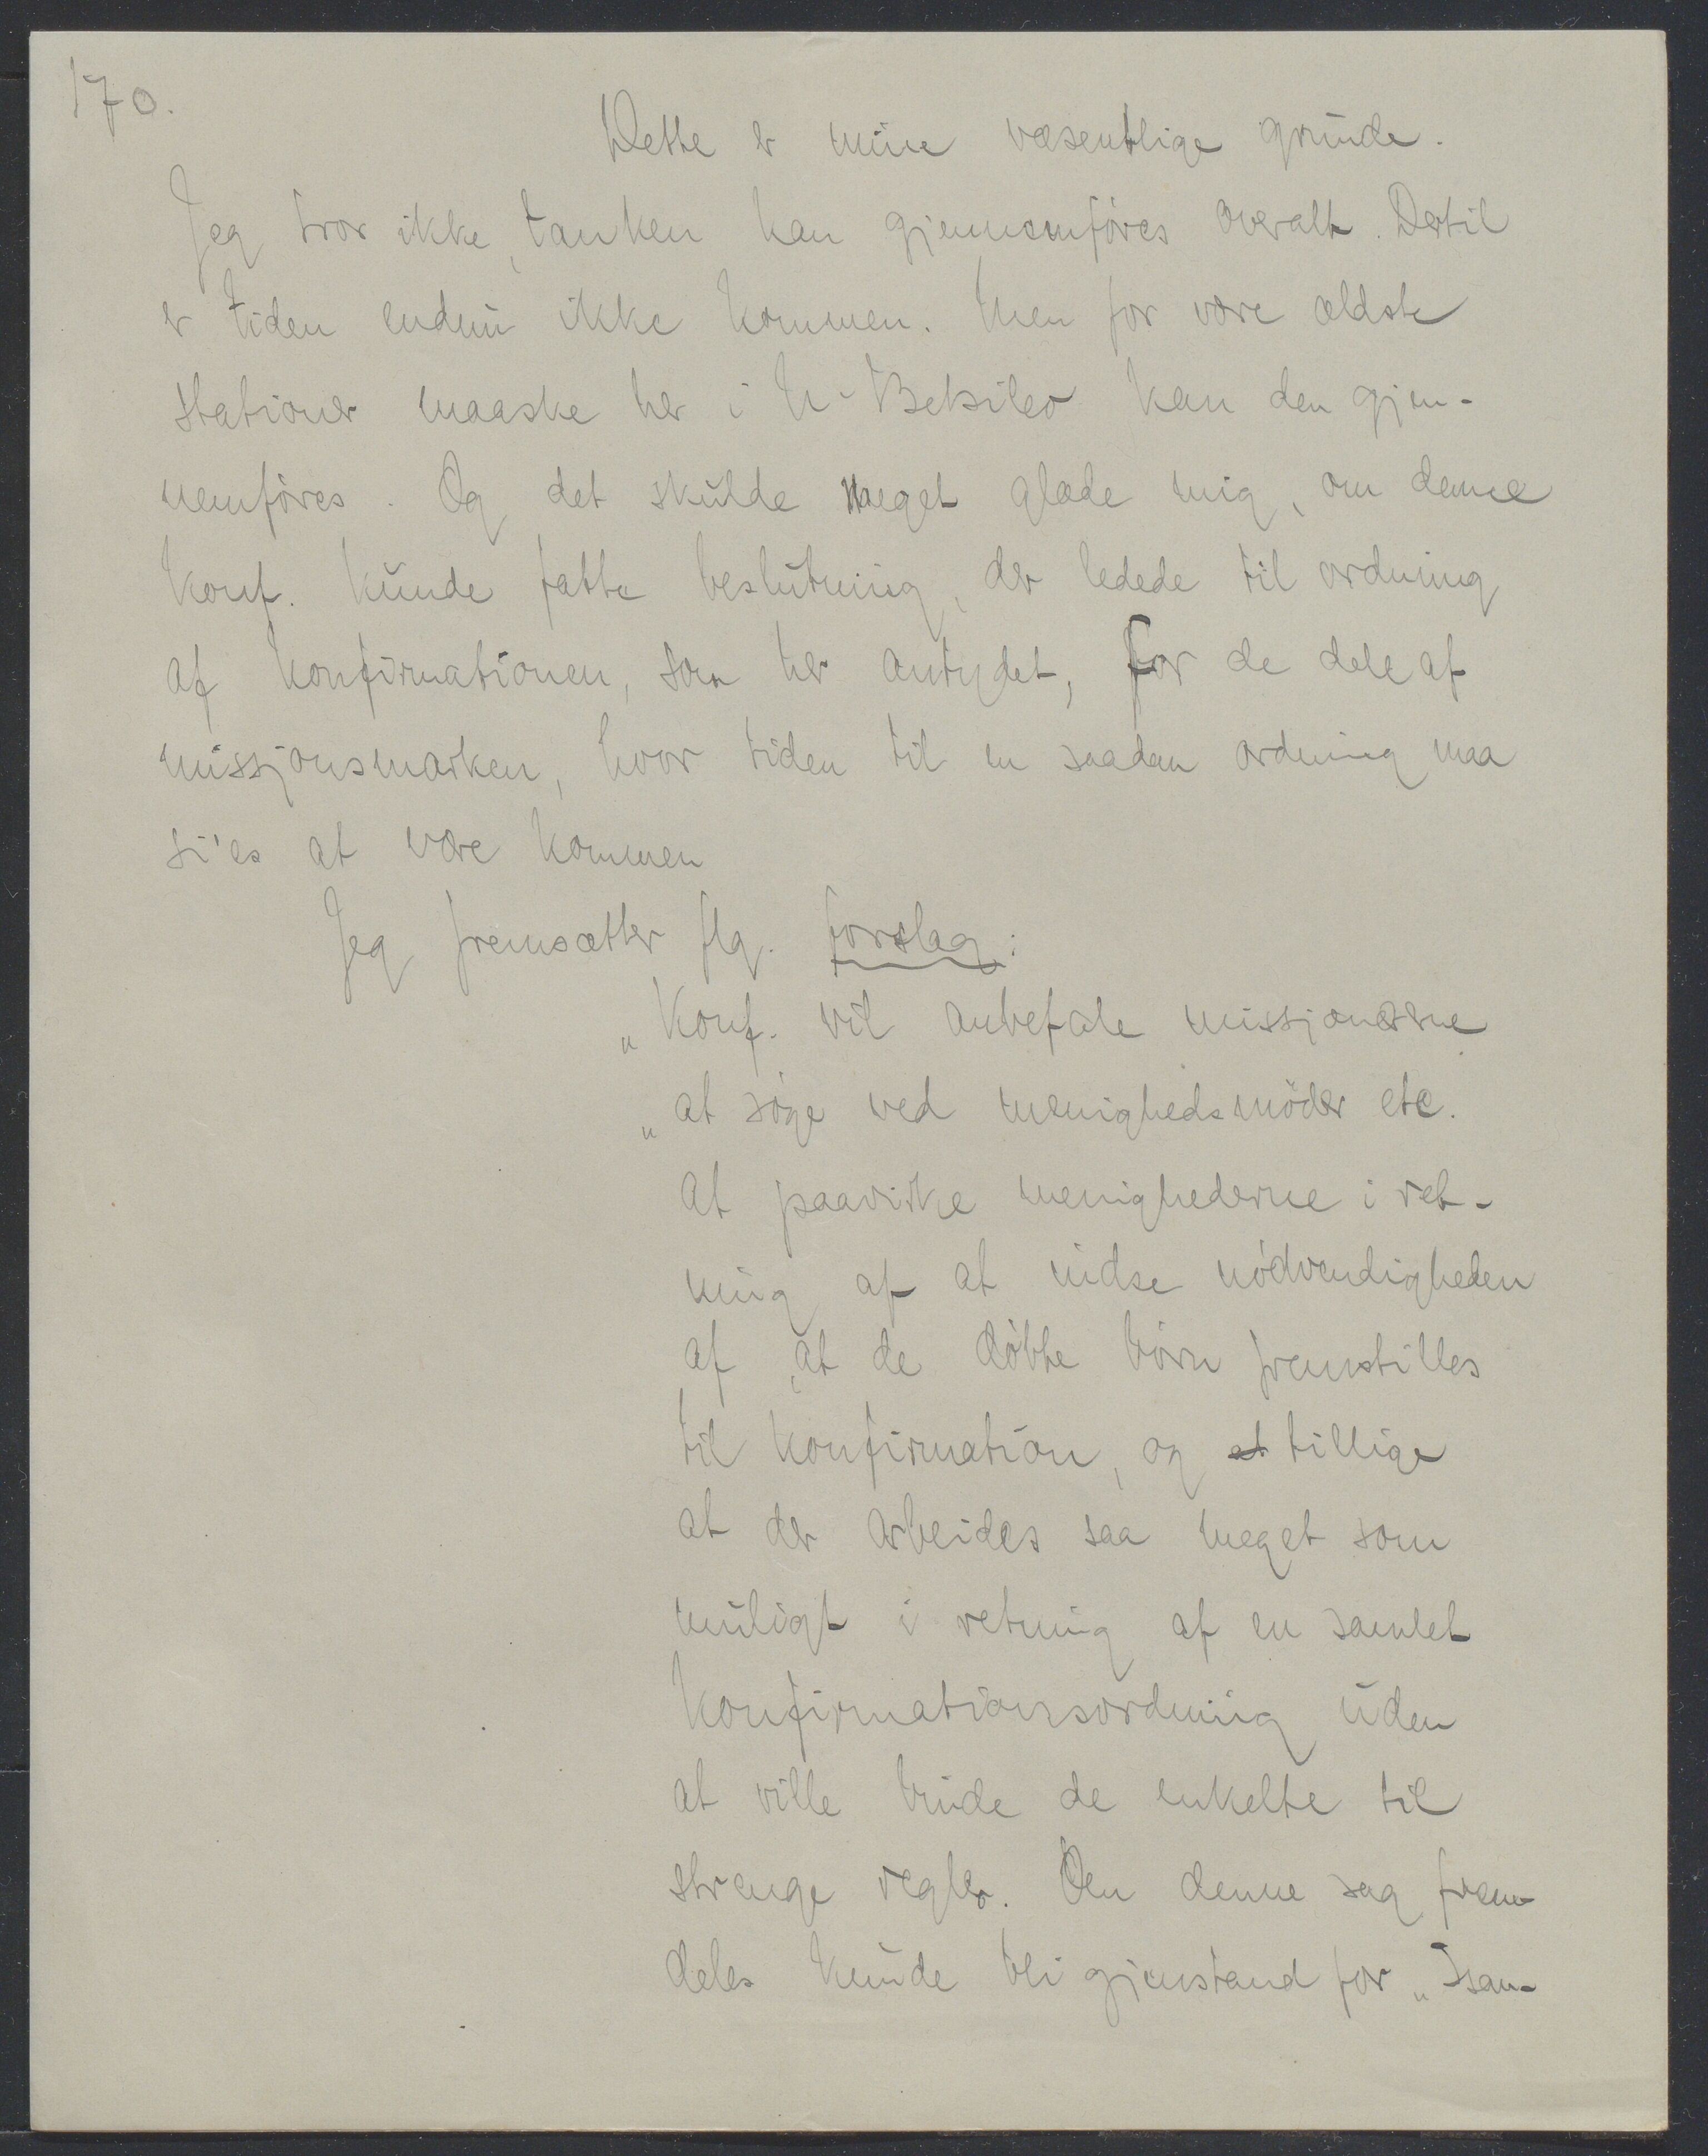 170.
Dette er mine væsentlige grunde.
Jeg tror ikke, tanken kan gjennemføres overalt. Dertil
er tiden endnu ikke kommen. Men for vore ældste
stationer maaske her i N-Betsileo kan den gjen-
nemføres. Og det skulde meget glæde mig, om denne
konf. kunde fatte beslutning, der ledede til ordning
af konfirmationen, som her antydet, for de dele af
missjonsmarken, hvor tiden til en saadan ordning maa
si'es at være kommen
Jeg fremsætter flg. forslag:
„Konf. vil anbefale missjonærerne
„at søge ved menighedsmøder etc.
at paavirke menighederne i ret-
ning af at indse nødvendigheden
af, at de døbte børn fremstilles
til konfirmation, og at tillige
at der arbeides saa meget som
muligt i retning af en samlet
konfirmationsordning uden
at ville binde de enkelte til
strenge regler. Den denne sag frem-
deles kunde bli gjenstand for „Isan-